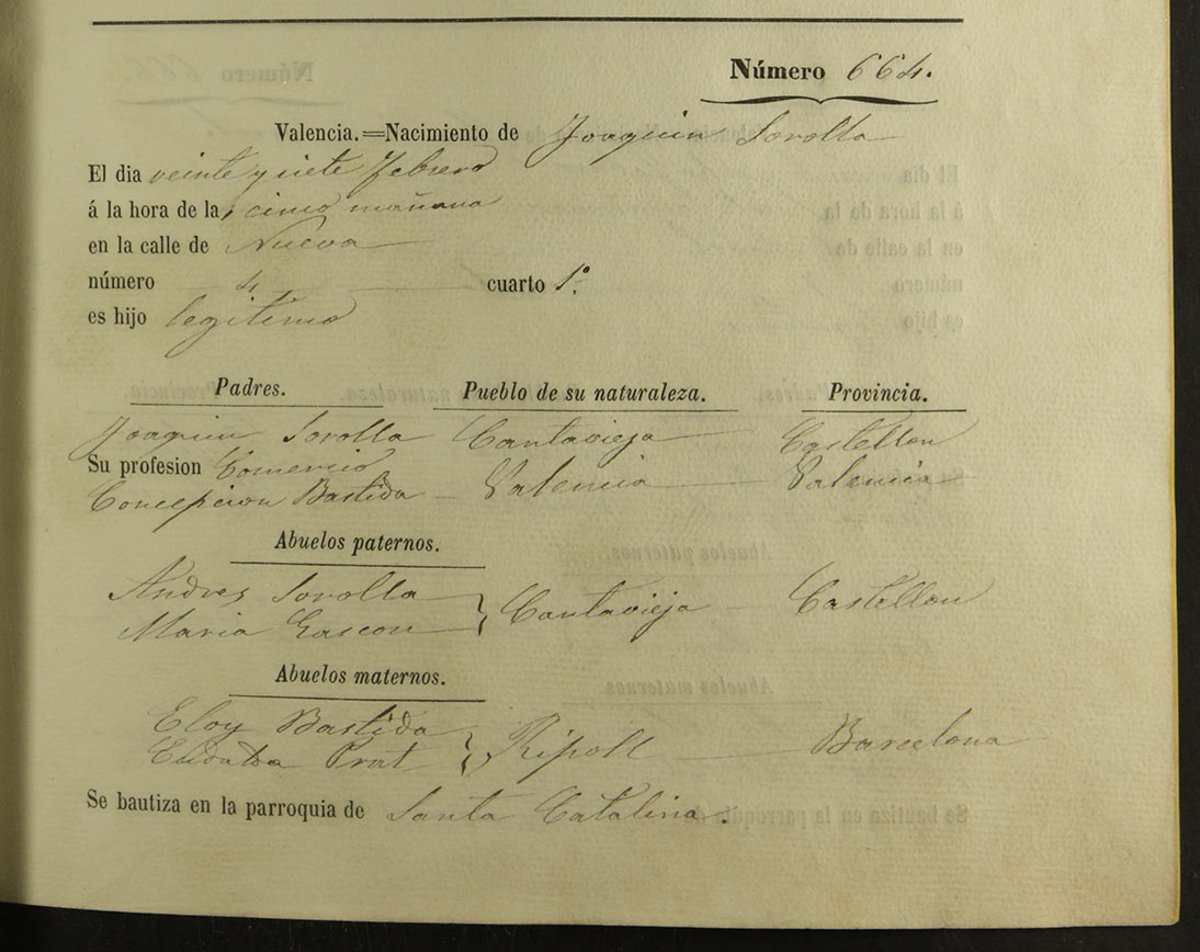 Número 664.
Valencia.=Nacimiento de Joaquin Sorolla
El dia veinte y siete Febrero
á la hora de la, cinco mañana
en la calle de Nueva
número 4 cuarto 1º
es hijo legitimo
Padres. Pueblo de su naturaleza. Provincia.
Joaquin Sorolla Cantavieja Castellon
Su profesion Comercio
Concepcion Bastida Valencia Valencia
Abuelos paternos.
Andres Sorolla
Maria Gascon } Cantavieja Castellon
Abuelos maternos.
Eloy Bastida
Prat } Ripoll Barcelona
Se bautiza en la parroquia de Santa Catalina.